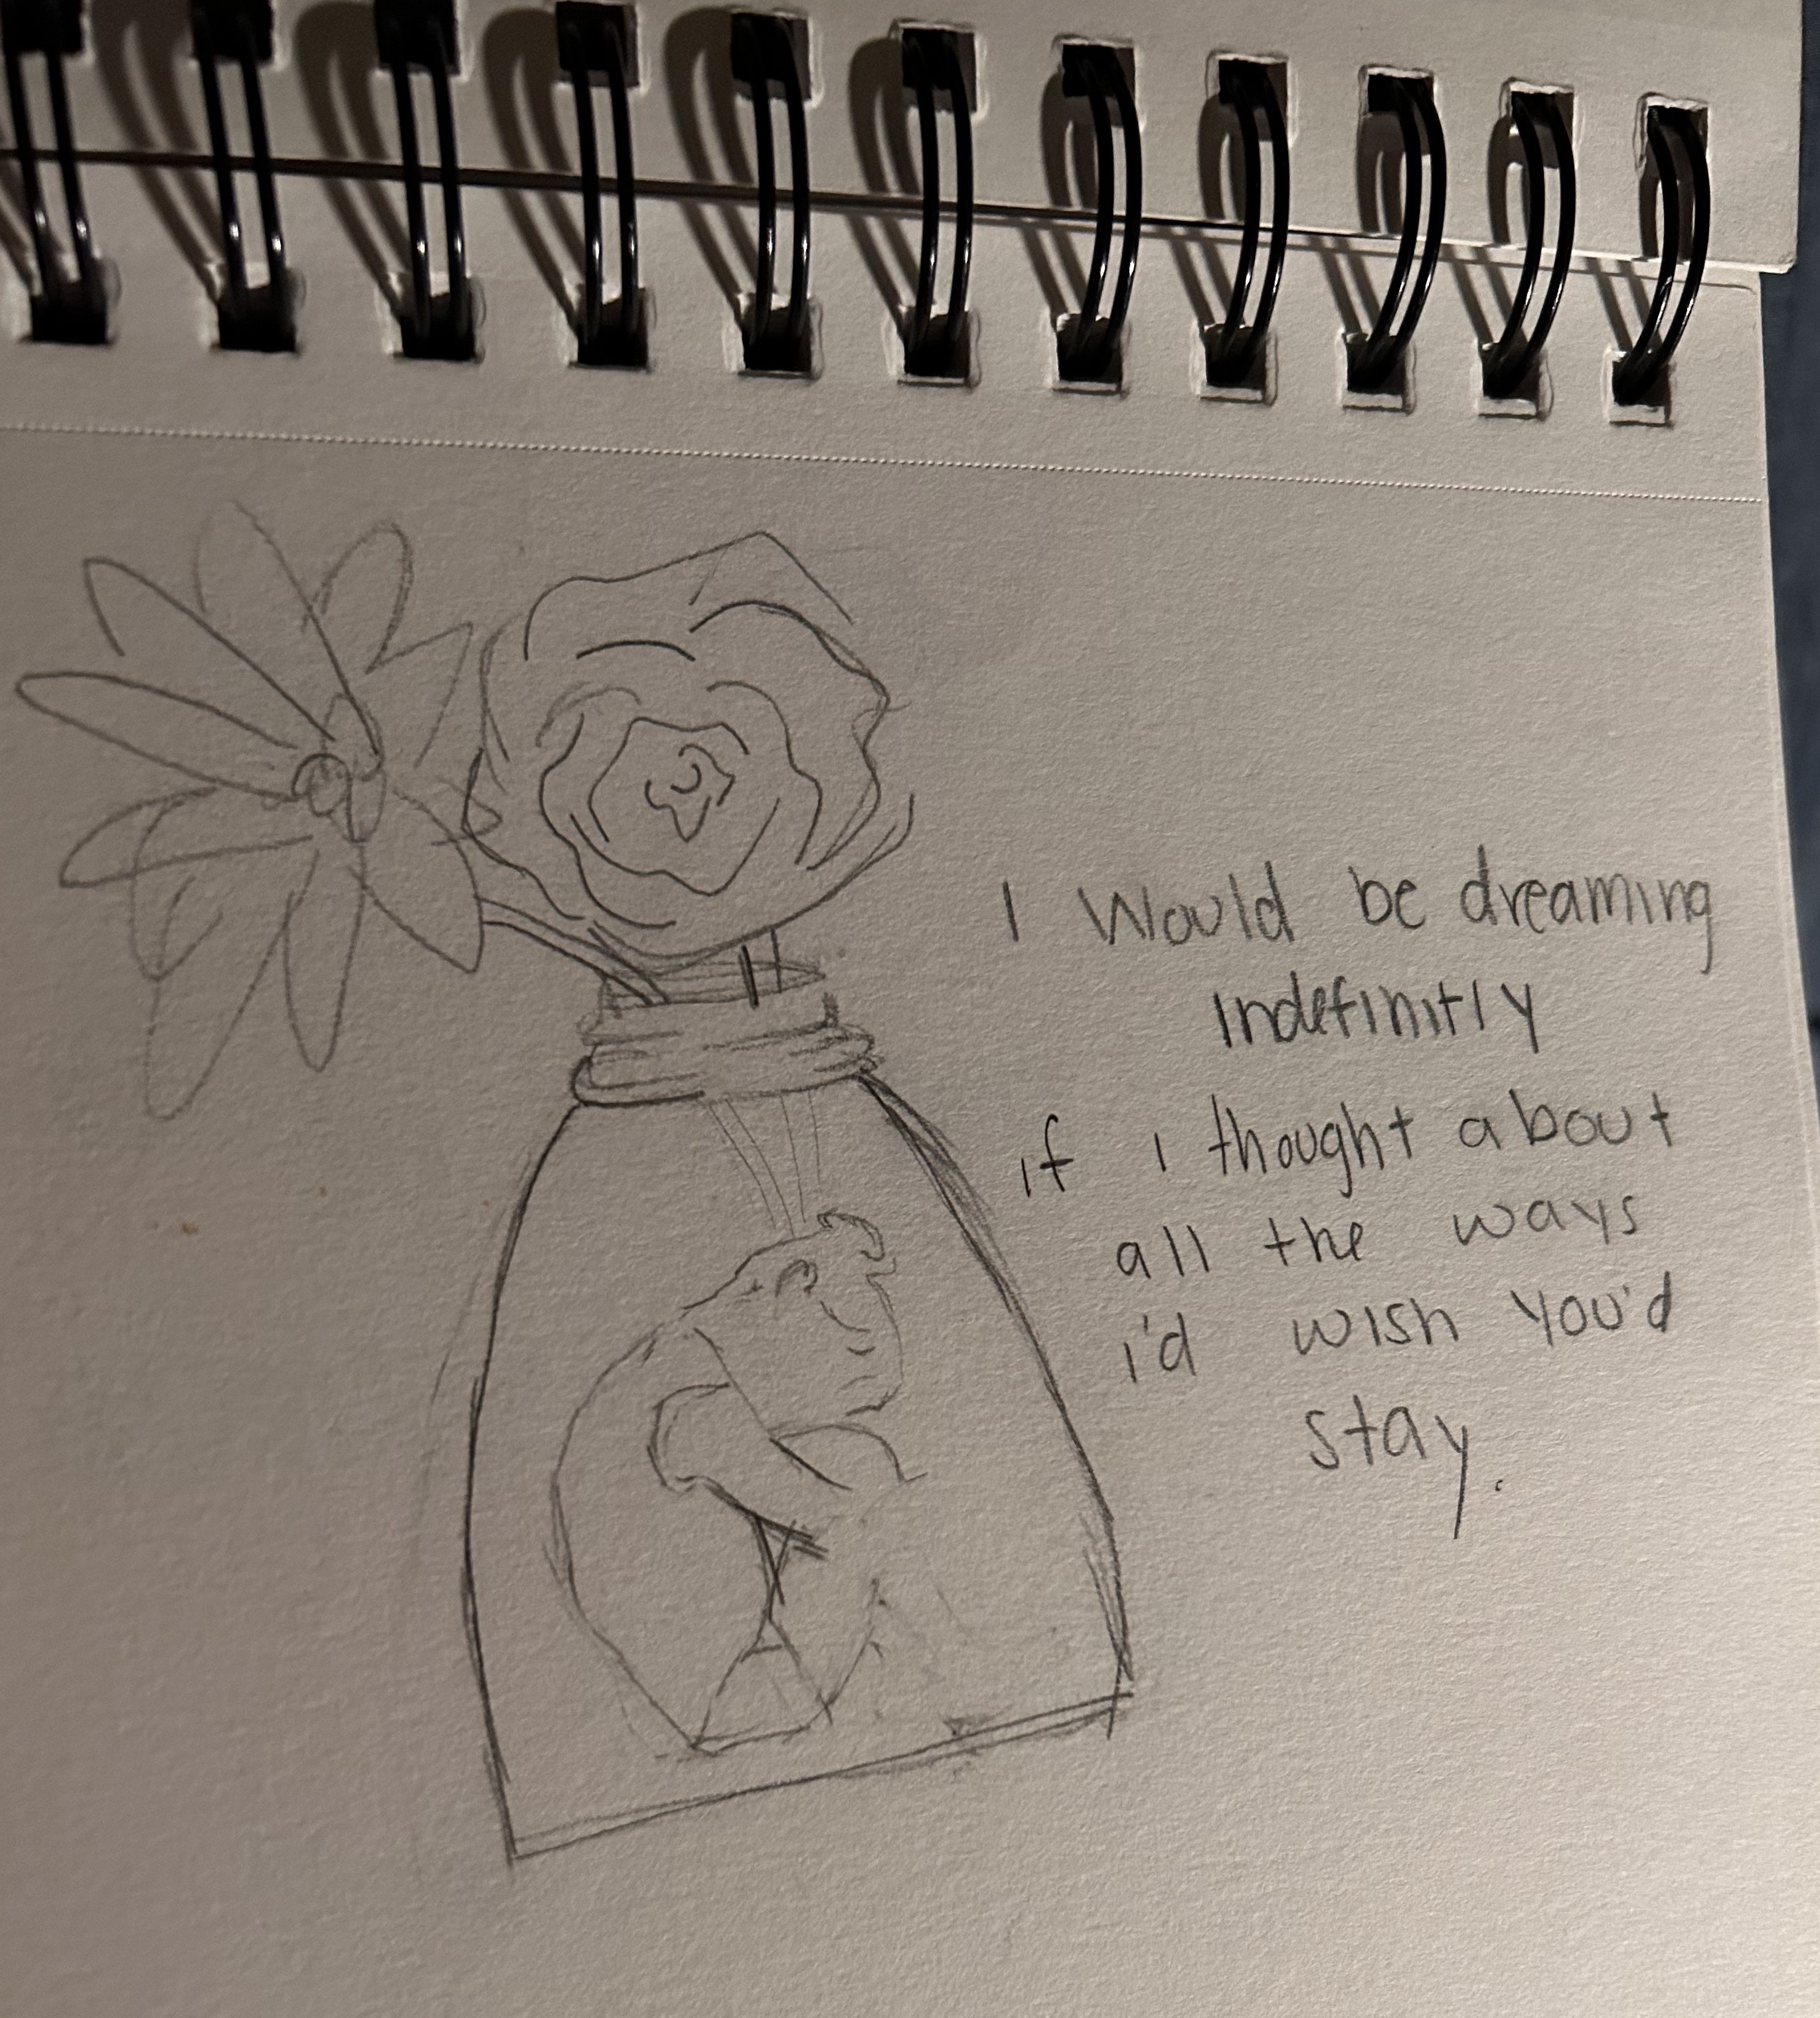 I Would be dreaming
Indefinitly
if i thought about
all the ways
i'd wish you'd
stay.